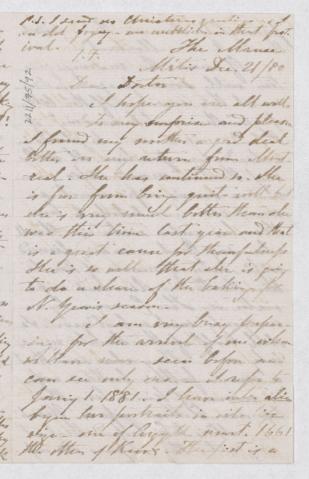 P.S. I send no Christmas
in that
The Manse
Metis Dec. 21/80
Dear Doctor
I hope you are all well
To my surprise and pleasure
I found my mother a great deal
better on my return from Mont
real. She has continued so. She
is far from being quite well but
she is very much better than she
was this time last year and that
is a great cause for thankfulness
She is so well that she is going
to do a share of the baking for the
N. Year's season.
I am very busy prepar
ing for the arrival of one whom
we have never seen before and
can see only once. I refer to
Jany 1. 1881. I have
two portraits in
one of 1661
the other of The first is a
221/95/92